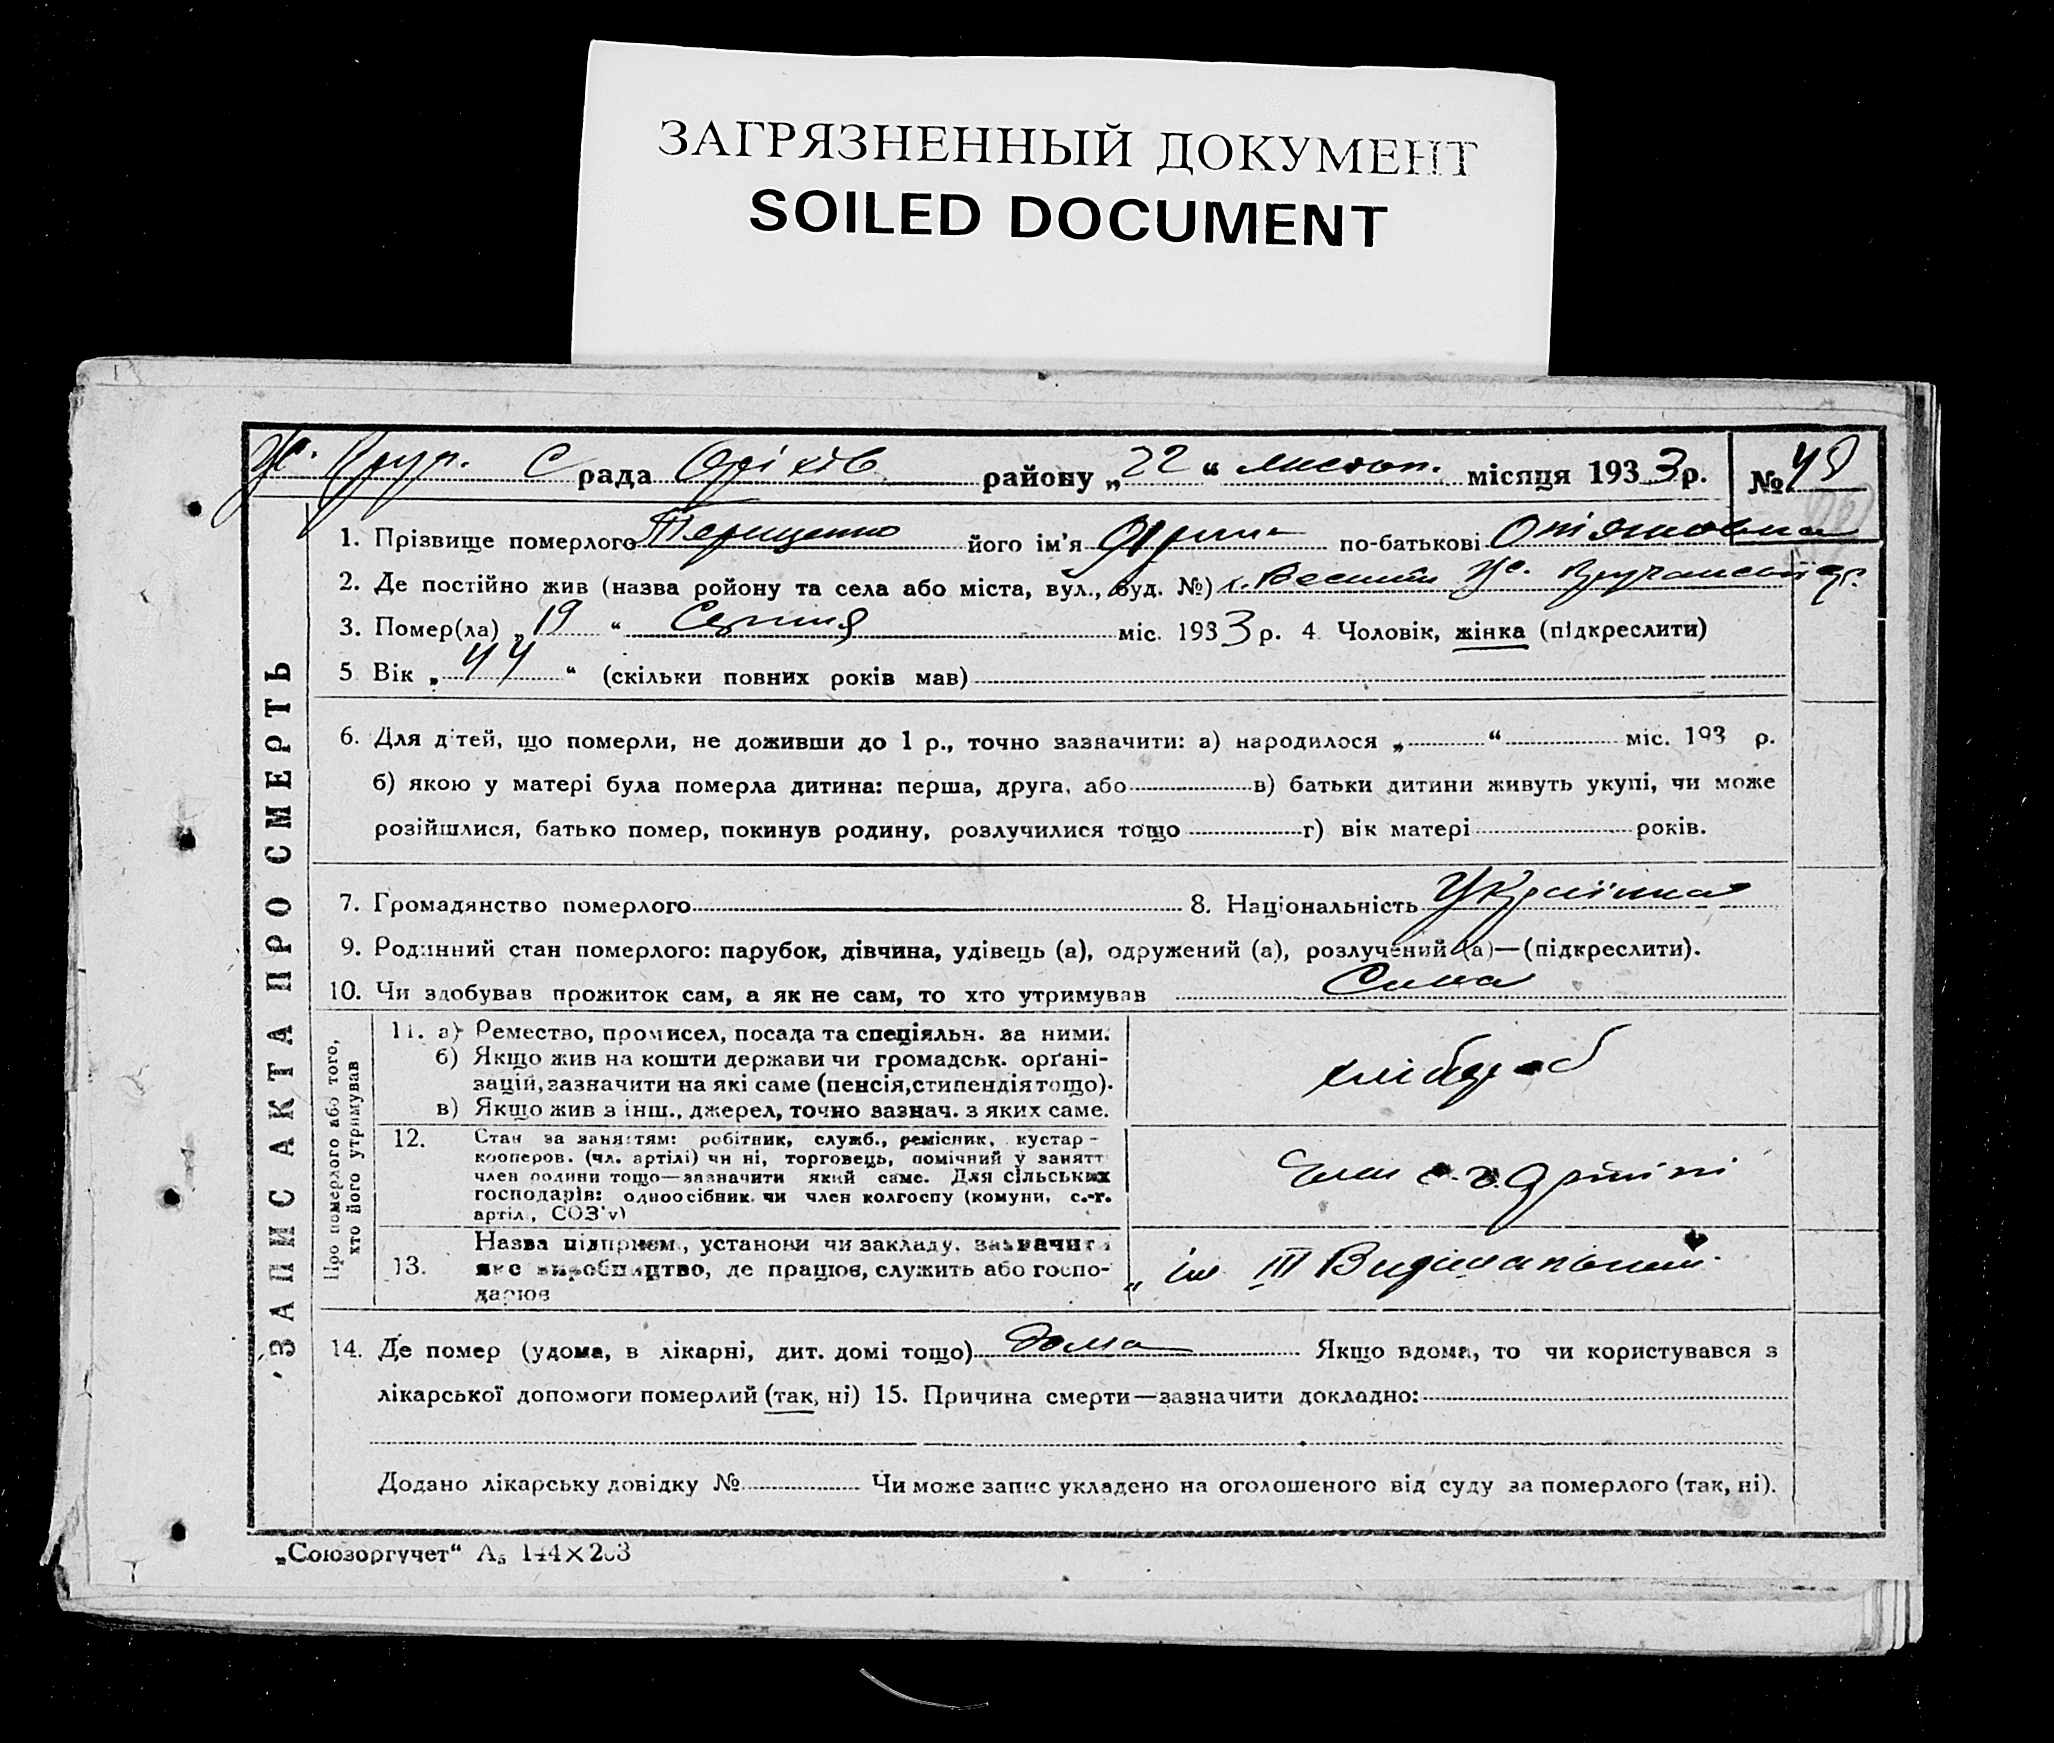 ЗАГРЯЗНЕННЫЙ ДОКУМЕНТ
SOILED DOCUMENT
С рада Оріхів району „22“ листоп. місяця 1933 р. №
1. Прізвище померлого Терещенко його ім’я по-батькові
2. Де постійно жив (назва ройону та села або міста, вул., буд. №)
3. Помер(ла) „19“ Серпня міс. 1933 р. 4 Чоловік, жінка (підкреслити)
5 Вік „44“ (скільки повних років мав)
6. Для дітей, що померли, не доживши до 1 р., точно зазначити: а) народилося „ “ міс. 193 р.
б) якою у матері була померла дитина: перша, друга, або в) батьки дитини живуть укупі, чи може
розійшлися, батько помер, покинув родину, розлучилися тощо г) вік матері років.
7. Громадянство померлого 8. Національність Українка
9. Родинний стан померлого: парубок, дівчина, удівець (а), одружений (а), розлучений (а)—(підкреслити).
10. Чи здобував прожиток сам, а як не сам, то хто утримував Сама
ЗАПИС АКТА ПРО СМЕРТЬ
Про померлого або того,
хто його утримував
11. а) Ремество, промисел, посада та спеціяльн. за ними.
б) Якщо жив на кошти держави чи громадськ. орґані-
зацій, зазначити на які саме (пенсія, стипендія тощо).
в) Якщо жив з інш., джерел, точно зазнач. з яких саме.
хлібороб
12. Стан за заняттям: робітник, служб., ремісник, кустар-
кооперов. (чл. артілі) чи ні, торговець, помічний у занятт
член родини тощо—зазначити який саме. Для сільських
господарів: одноосібник, чи член колгоспу (комуни, с.-г.
артіл., СОЗ’у)
Член с. г. Артілі
13. Назва підприєм., установи чи закладу, зазначити
яке виробництво, де працює, служить або госпо-
дарює
„ім III
14. Де помер (удома, в лікарні, дит. домі тощо) дома Якщо вдома, то чи користувався з
лікарської допомоги померлий (так, ні) 15. Причина смерти—зазначити докладно:
Додано лікарську довідку № Чи може запис укладено на оголошеного від суду за померлого (так, ні).
„Союзоргучет“ А₅ 144×203